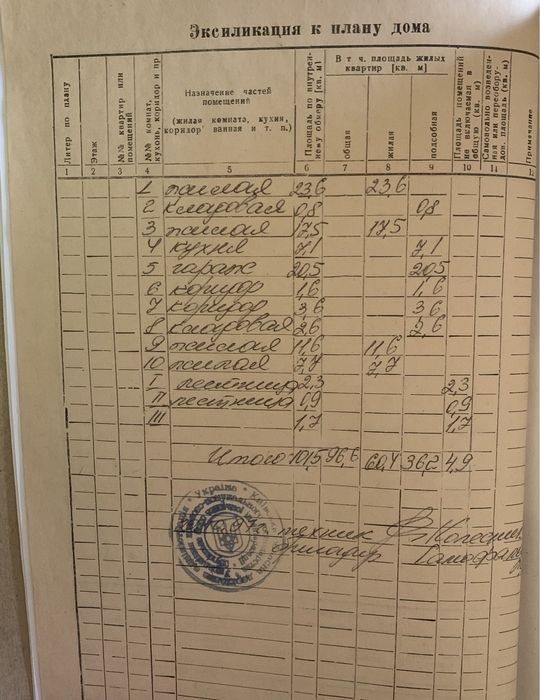 Экспликация к плану дома
Литер по плану
Этаж
№№ квартир или помещений
№№ комнат, кухонь, коридор и пр
Назначение частей помещений
(жилая комната, кухня, коридор ванная и т. п.)
Площадь по внутреннему обмеру (кв. м)
В т ч. площадь жилых квартир (кв. м)
общая
жилая
подсобная
Площадь помещений не включаемая в общую (кв. м)
Самовольно возведенная или переоборудов. площадь (кв. м)
Примечание
1 2 3 4 5 6 7 8 9 10 11 12
1 жилая 23,6 23,6
2 кладовая 0,8 0,8
3 жилая 17,5 17,5
4 кухня 7,1 7,1
5 гараж 20,5 20,5
6 коридор 1,6 1,6
7 коридор 3,6 3,6
8 кладовая 2,6 2,6
9 жилая 11,6 11,6
10 жилая 7,7 7,7
I лестница 2,3 2,3
II лестница 0,9 0,9
III 1,7 1,7
Итого 101,5 96,6 60,4 36,2 4,9
Україна
техник